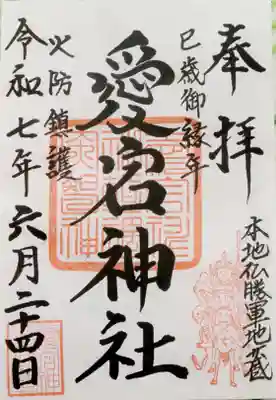 奉拝
巳歳御縁年
本地仏勝軍地蔵
愛宕神社
火防鎮護
令和七年六月二十四日